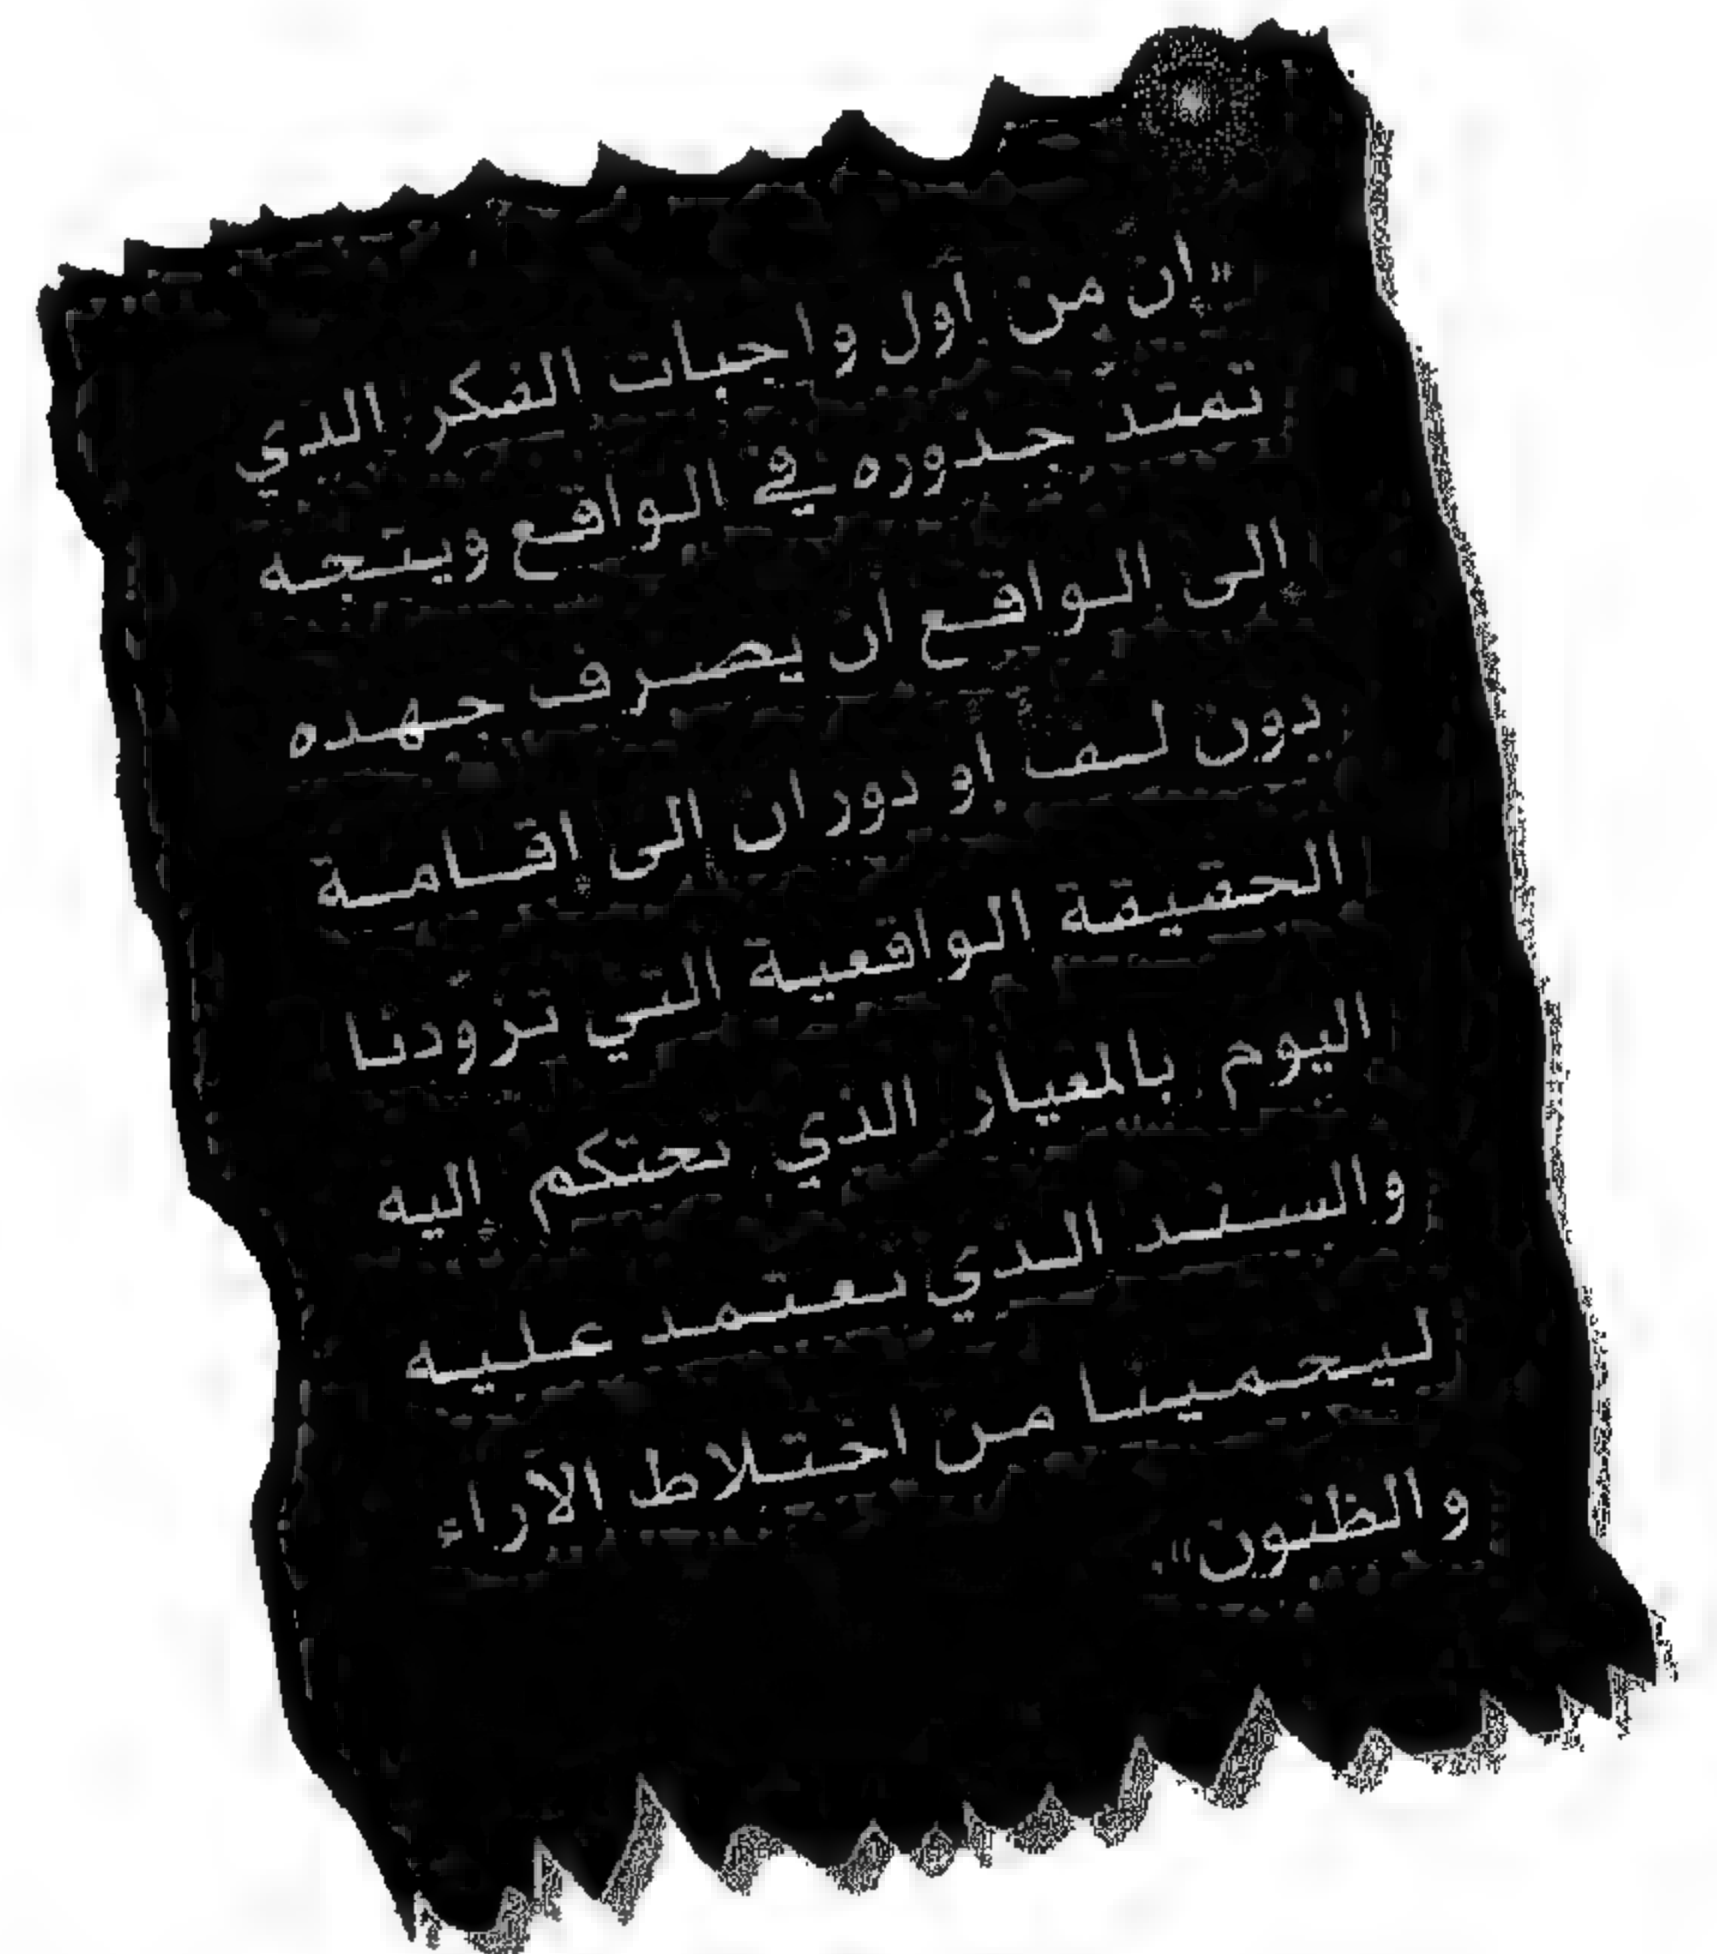 «إن من أول واجبات الفكر الذي
تمتدّ جذوره في الواقع ويتجه
إلى الواقع أن يصرف جهده
دون لف أو دوران الى إقامة
الحقيقة الواقعية التي تزوّدنا
اليوم بالمعيار الذي نحتكم إليه
والسند الذي نعتمد عليه
ليحمينا من اختلاط الآراء
والظنون»